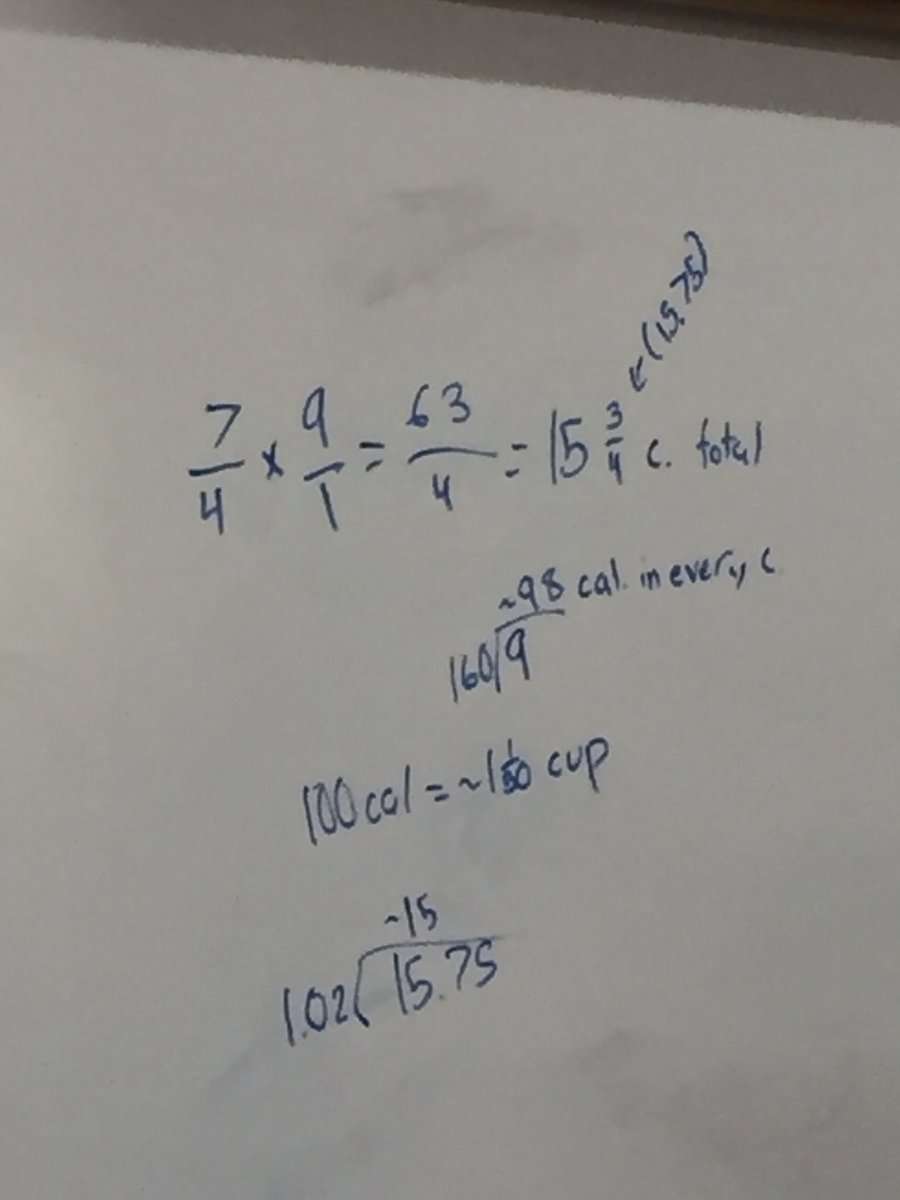 (15.75)
7/4 x 9/1 = 63/4 = 15 3/4 ← c. total
~98 cal. in every c
160⟌9
100 cal = ~1 1/50 cup
~15
1.02⟌15.75